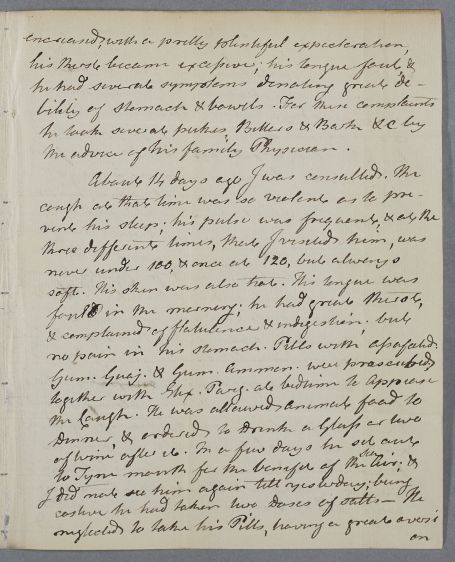 encreased, with a pretty plentiful expectoration,
his thirst became excessive; his tongue foul &
he had several symptoms denoting great de-
bility of stomach & bowels. For these complaints
he took several pukes Bitters & Bark &c by
the advice of his family Physician.
About 14 days ago I was consulled. The
cough at that time was so violent as to pre-
vent his sleep; his pulse was frequent, & at the
three different times, that I visited him, was
never under 100, & once at 120, but always
soft. His skin was also hot. His tongue was
foul in the morning; he had great thirst,
& complained of flatulence & indigestion, but
no pain in his stomach. Pills with assafœtid.
Gum. Guaj. & Gum. Ammon. were prescribed,
together with Elix. Parig. at bedtime to appease
the Cough. He was allowed animal food to
Dinner, & ordered to drink a Glass or two
of wine after it. In a few days he set out
to Tynemouth for the benefit of the Sea Air; &
I did not see him again till yesterday; being
costive he had taken two Doses of salts — He
neglected to take his Pills, having a great aversi
on